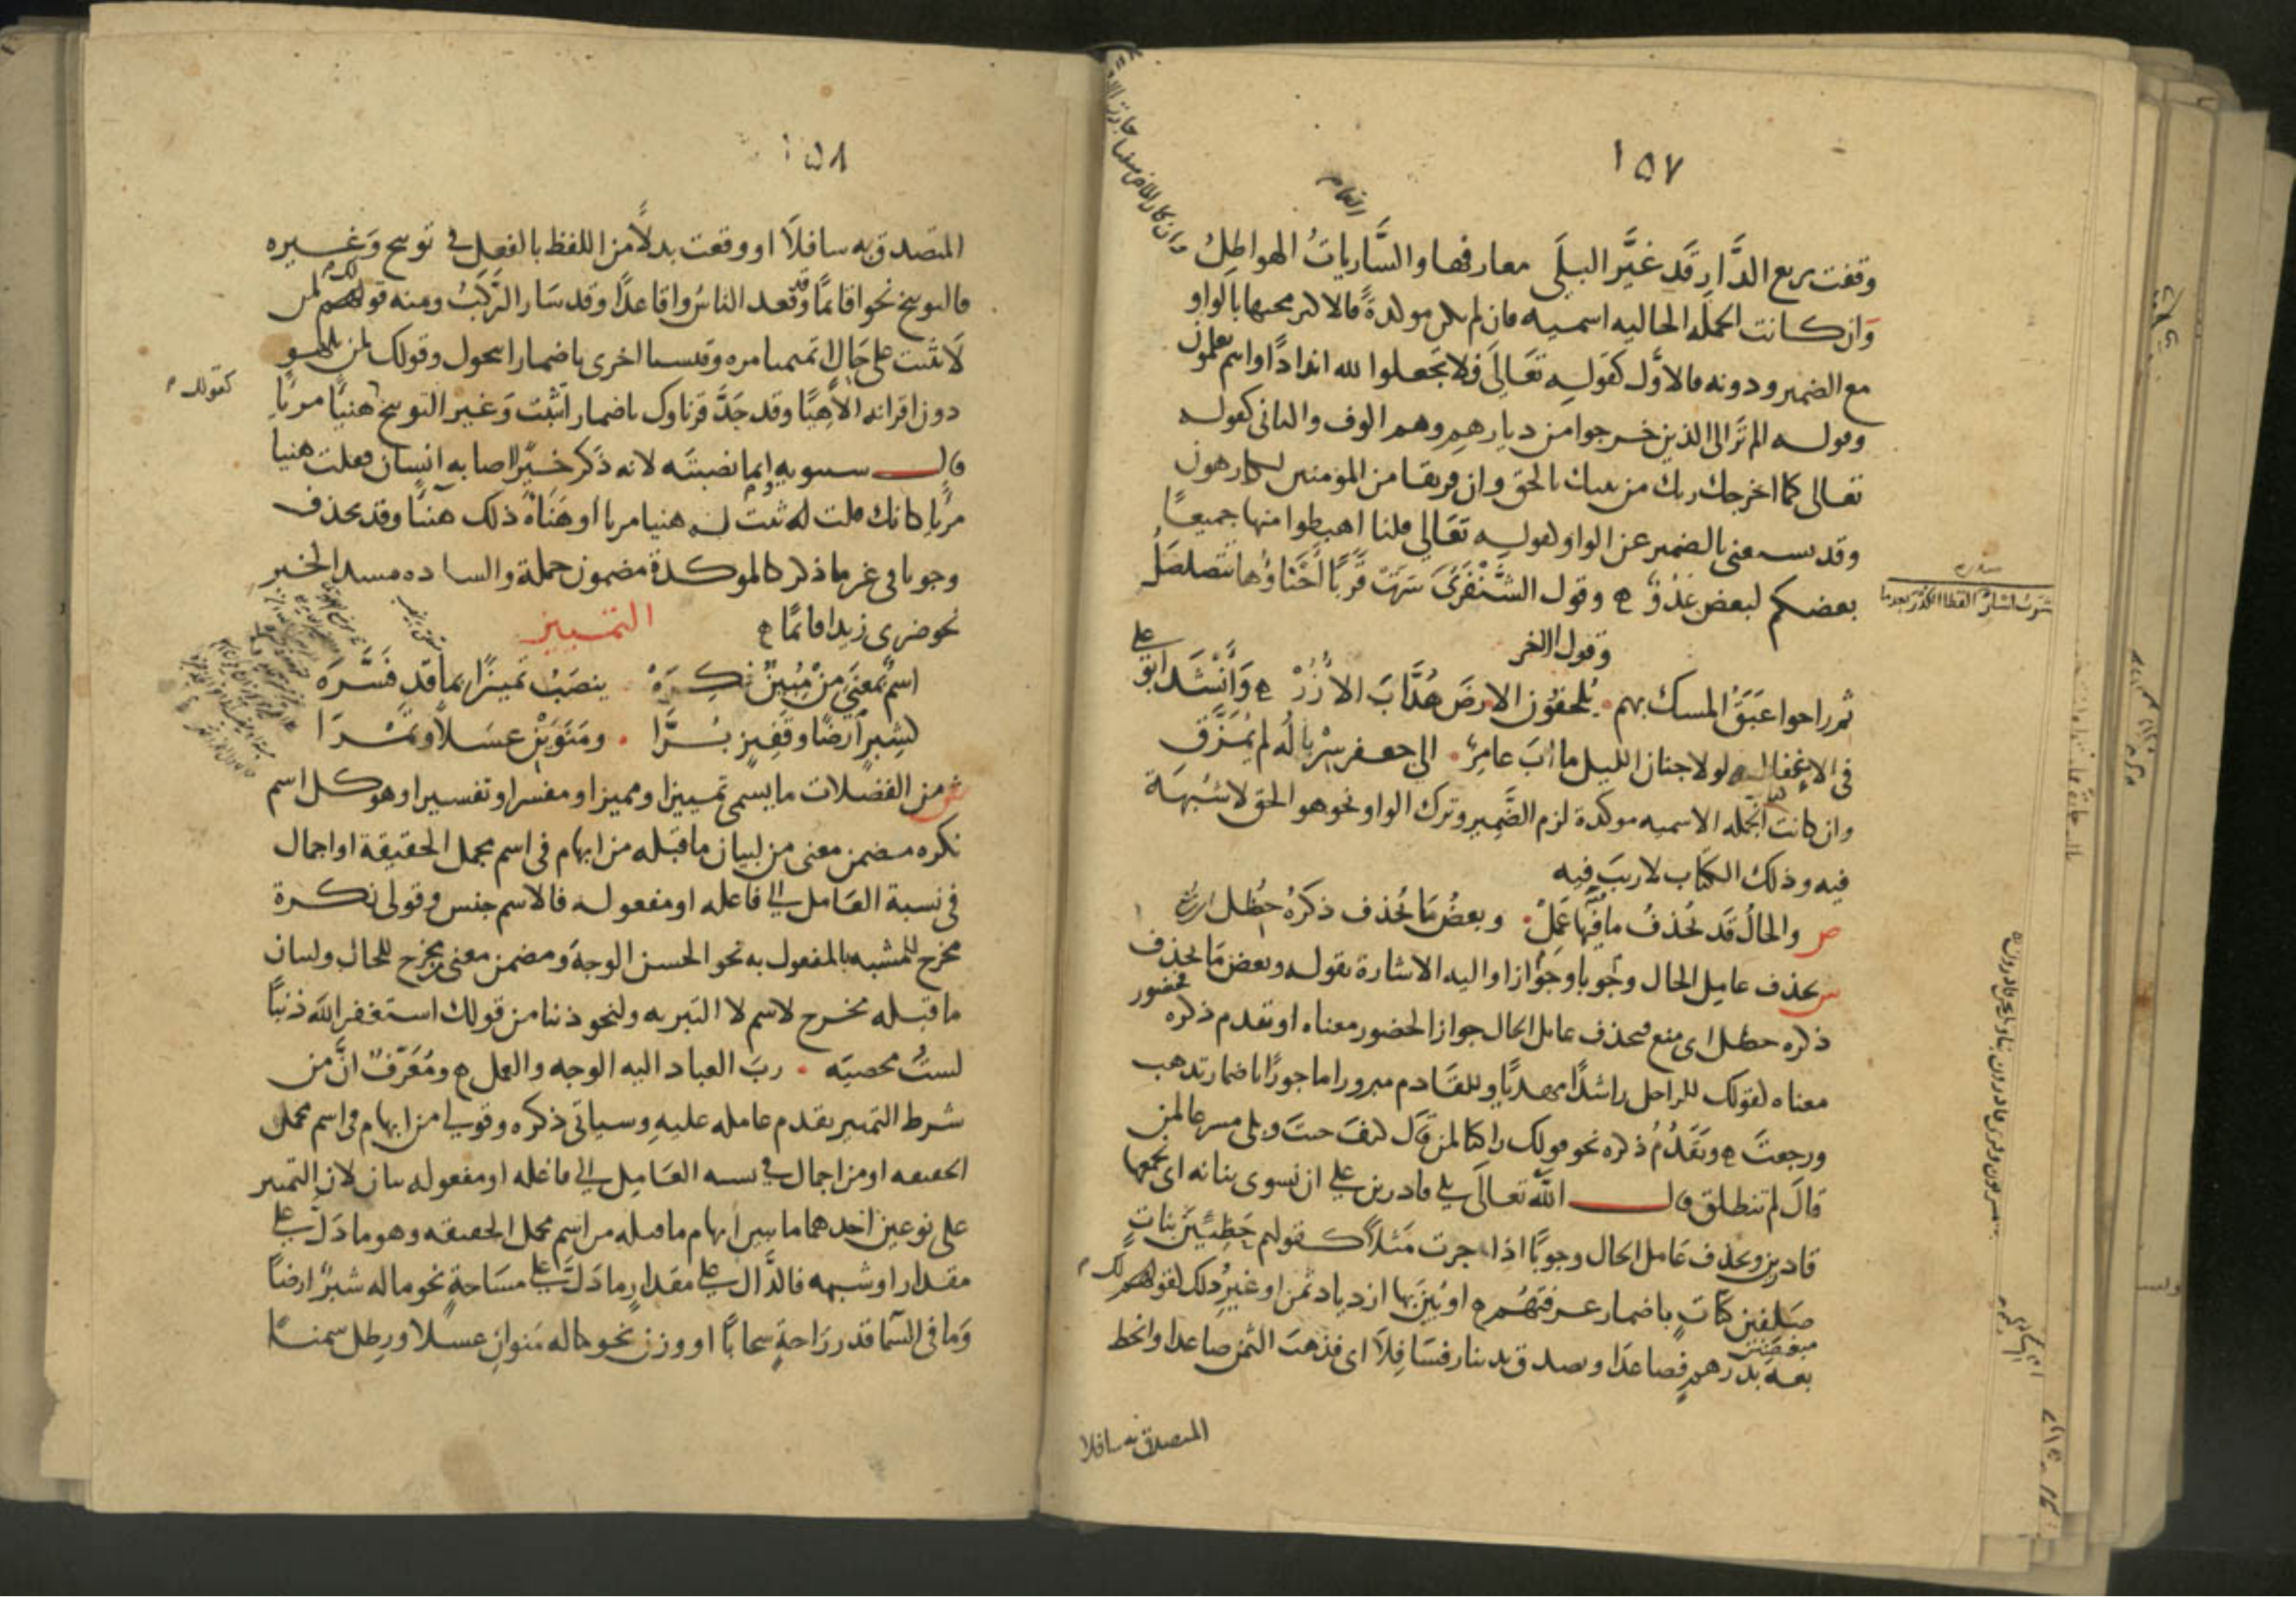 ١٥٧
وقفت بربع الدَّارِ قَد غَيَّر البِلَى معارفها والسَّارياتُ الهواطِلُ
وَان كانت الجملة الحاليه اسميه فان لم تكن موكدةً فالاكثر مجيها بالواو
مع الضمير ودونه فالاوَّل كقولِهِ تعَالَى فلا تَجعلوا لله اندادًا وانتم تعلمون
وقوله الم تَرَ الى الذين خرجوا من ديارهِم وهم الوف والثانى كقوله
تعالى كما اخرجك ربك من بيتك بالحق وان فريقا من المومنين لكارهون
وقد يستغنى بالضمير عن الواو كقولِه تعَالى قلنا اهبطوا منها جميعًا
بعضكم لبعض عَدُوٌّ ه وقول الشَّنْفَرَى سَرَتْ قَرَبًا أَحْنَاؤُها تتصَلصَلُ
وقول الاخر
ثم راحوا عَبَقُ المسك بهم يُلحفون الارضَ هُدَّابَ الاُزُرْ ه وَأَنْشَد ابو على
فى الاِغفال ولولا جنان الليل ما آبَ عامِرٌ الى جعفر سِرْبالُه لم يُمَزَّقِ
وان كانت الجمله الاسميه موكدة لزم الضَّمِير وترك الواو نحو هو الحق لا شبهَة
فيه وذلك الكتاب لا ريبَ فيه
ص والحالُ قَد يُحذفُ ما فيها عَمِلْ وبعضُ مَا يُحذف ذكرُهُ حُظِل
ش يحذف عامِل الحال وجُوبا وجَوازا واليه الاشارة بقوله وبعض مَا يحذف
ذكره حظل اى منع فيحذف عامل الحال جوازا لحضور معناه او تقدم ذكره
معناه كقولك للراحل راشدًا مهديًا وللقادم مبرورا ماجورًا باضمار تذهب
ورجعتَ ه وتقَدُّمُ ذكره نحو قولك راكبا لمن قَالَ كيفَ جيتَ وبلى مسرعا لمن
قالَ لم تنطلق قال اللّه تعالَى بلى قادرين على ان نسوى بنانه اى نجمعها
قادرين ويحذف عَامل الحال وجوبًا اذا جرت مَثلاً كقولهم حَظِيِّينَ بناتٍ
صَلِفينَ كنَّاتٍ باضمار عرفتهُم ه او بُيّن بها ازدياد ثمن او غيرُ ذلك كقولك
بعه بدرهمٍ فصاعدًا وتصدق بدينار فسَافِلاً اى فذهبَ الثمن صاعدا وانحط
المتصدق به سافلا

١٥٨
المتصدق به سافلاً او وقعت بدلاً من اللفظ بالفعل فى توبيخ وَغيره
فالتوبيخ نحو اقائمًا وقد قعد الناسُ واقاعدًا وقد سَار الرَّكبُ ومنه قولك لمن
لا يثبت على حَالٍ اتميميا مره وقيسيا اخرى باضمار اتحول وقولك لمن يلهو
دون اقرانه الاهيًا وقد جَدَّ قرناوك باضمار اتثبت وَغير التوبيخ هنيًا مريًا
قال سيبويه وانما نصبته لانه ذَكر خيرًا اصابه انسان فقلت هنيا
مريا كانك قلت له ثبت له هنيا مريا او هَنَأَهُ ذلك هنيًا وقد يحذف
وجوبا فى غير ما ذكر كالموكدة مضمون جملة والساده مسد الخبر
نحو ضربى زيدا قائمًا ه
التمييز
اسمٌ بمعنَى مِنْ مُبِينٌ نَكِرَهْ ينصَبُ تمييزًا بما قد فَسَّرَهْ
كشِبرٍ ارضًا وقَفِيزٍ بُرًّا ومَنَوَيْنِ عسَلاً وتمْرَا
ش من الفضلات ما يسمى تمييزا ومميزا ومفسرا وتفسيرا وهو كل اسم
نكره مضمن معنى من لبيان ما قبله من ابهام فى اسم مجمل الحقيقة او اجمال
فى نسبة العَامل الى فاعله او مفعوله فالاسم جنس وقولى نكرة
مخرج للمشبه بالمفعول به نحو الحسن الوجهَ ومضمن معنى من مخرج للحال ولبيان
ما قبله مخرج لاسم لا التبريه ولنحو ذنبا من قولك استغفر اللّهَ ذنبًا
لستُ محصيَه ربَ العباد اليه الوجه والعمل ه ومُعَرِّفٌ انَّ من
شرط التمييز تقدم عامله عليهِ وسياتى ذكره وقولى من ابهام فى اسم مجمل
الحقيقه او من اجمال فى نسبه العَامِل الى فاعله او مفعوله بيان لان التمييز
على نوعين احدهما ما بين ابهام ما قبله من اسم مجمل الحقيقه وهو ما دَلَّ على
مقدار او شبهه فالدَّال على مقدار ما دَلَّ على مسَاحةٍ نحو ما له شبرٌ ارضًا
وَما فى السّما قدر رَاحةٍ سحابًا او وزن نحو ما له مَنوان عسلا ورطل سمنا
كقولك